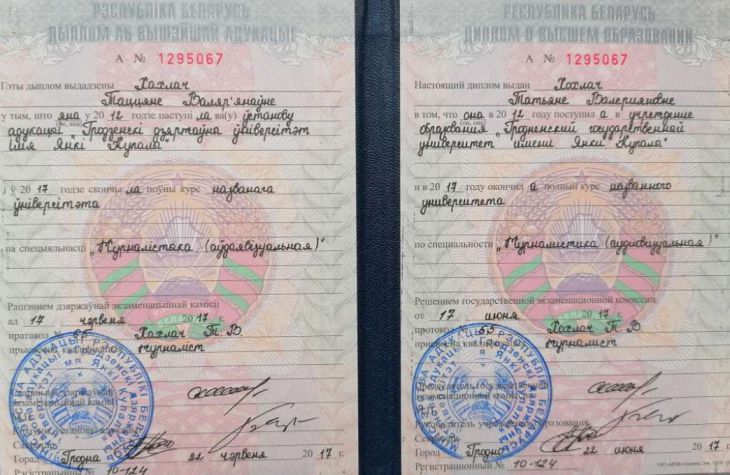 РЭСПУБЛІКА БЕЛАРУСЬ
ДЫПЛОМ АБ ВЫШЭЙШАЙ АДУКАЦЫІ
А № 1295067
Гэты дыплом выдадзены Хахлач
Таццяне Валяр'янаўне
у тым, што яна у 2012 годзе паступі ла ва(у) ўстанову
адукацыі "Гродзенскі дзяржаўна ўніверсітэт
імя Янкі Купала"
і ў 2017 годзе скончы ла поўны курс названага
ўніверсітэта
па спецыяльнасці "Журналістыка (аўдыявізуальная)"
Рашэннем дзяржаўнай экзаменацыйнай камісіі
ад 17 чэрвеня 2017 г.
пратакол № 65 Хахлач Т. В
журналіст
Сакратар
Горад Гродна 22 чэрвеня 2017 г.
Рэгістрацыйны № 10-124
РЕСПУБЛИКА БЕЛАРУСЬ
ДИПЛОМ О ВЫСШЕМ ОБРАЗОВАНИИ
А № 1295067
Настоящий диплом выдан Хохлач
Татьяне Валериановне
в том, что она в 2012 году поступил а в учреждение
образования "Гродненский государственной
университет имени Янки Купала"
и в 2017 году окончил а полный курс названного
университета
по специальности "Журналистика (аудиовизуальная)"
Решением государственной экзаменационной комиссии
от 17 июня 2017 г.
протокол № 65 Хохлач Т. В
журналист
Председатель государственной
экзаменационной комиссии
Руководитель учреждения образования
Секретарь
Город Гродно 22 июня 2017 г.
Регистрационный № 10-124